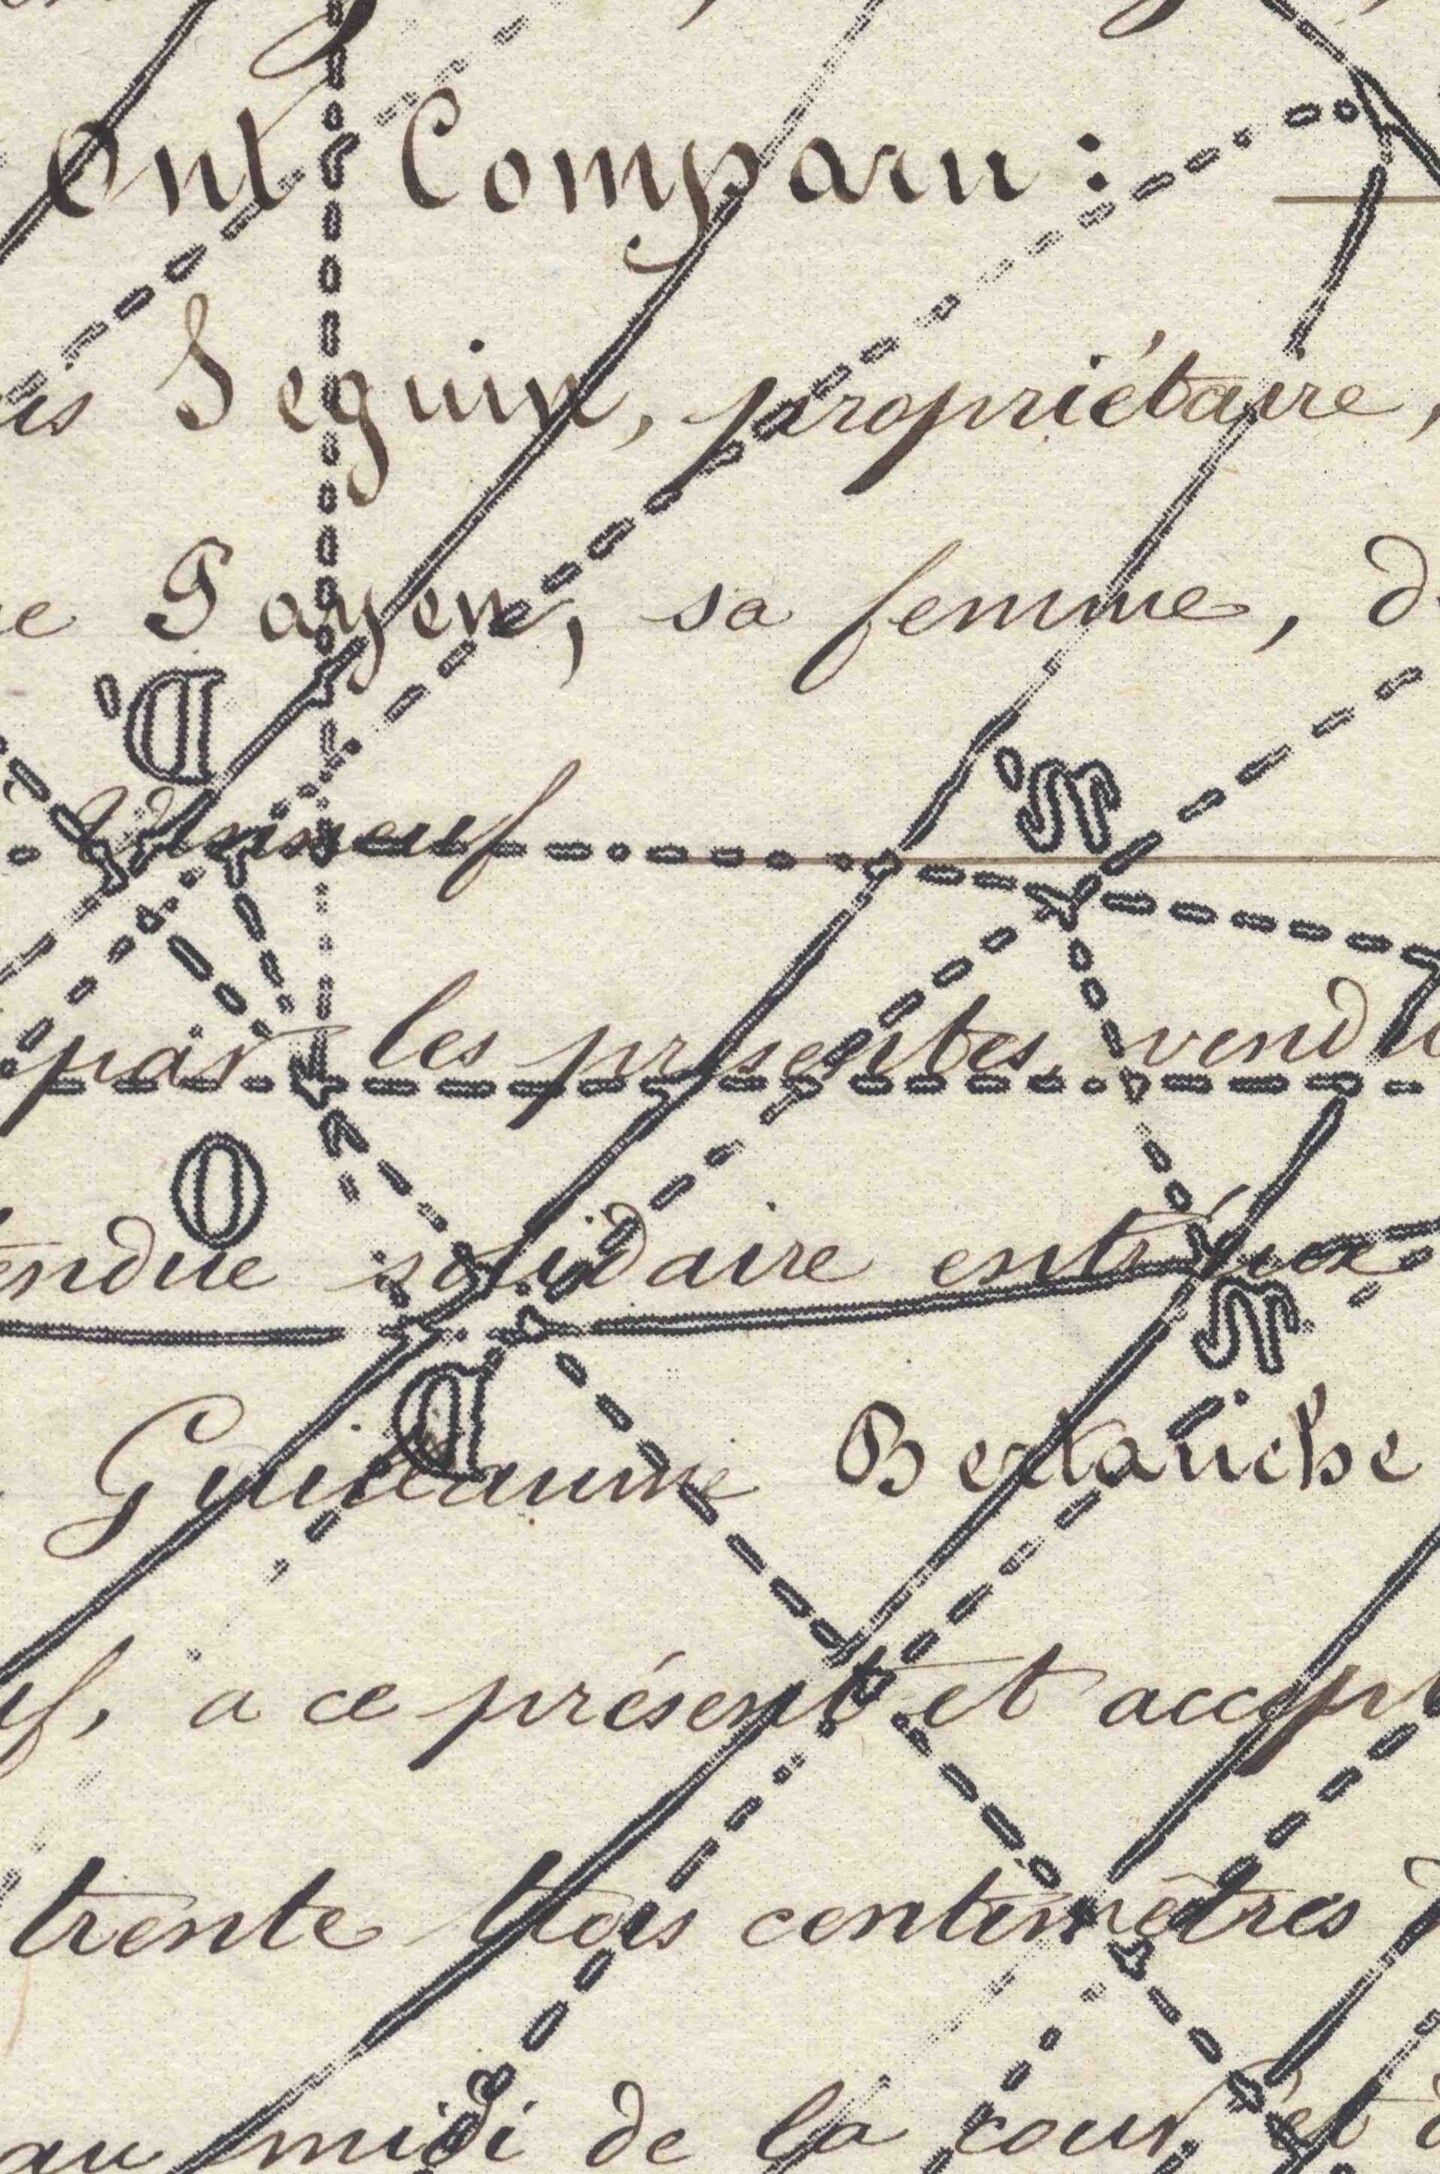 Ont Comparu :
Seguin, propriétaire,
Payen, sa femme,
D'
n'
par les présentes, vendu
O
solidaire entr'eux
n
D
Guillaume Bertauche
a ce présent et accept
trente trois centimètres
au midi de la cour et